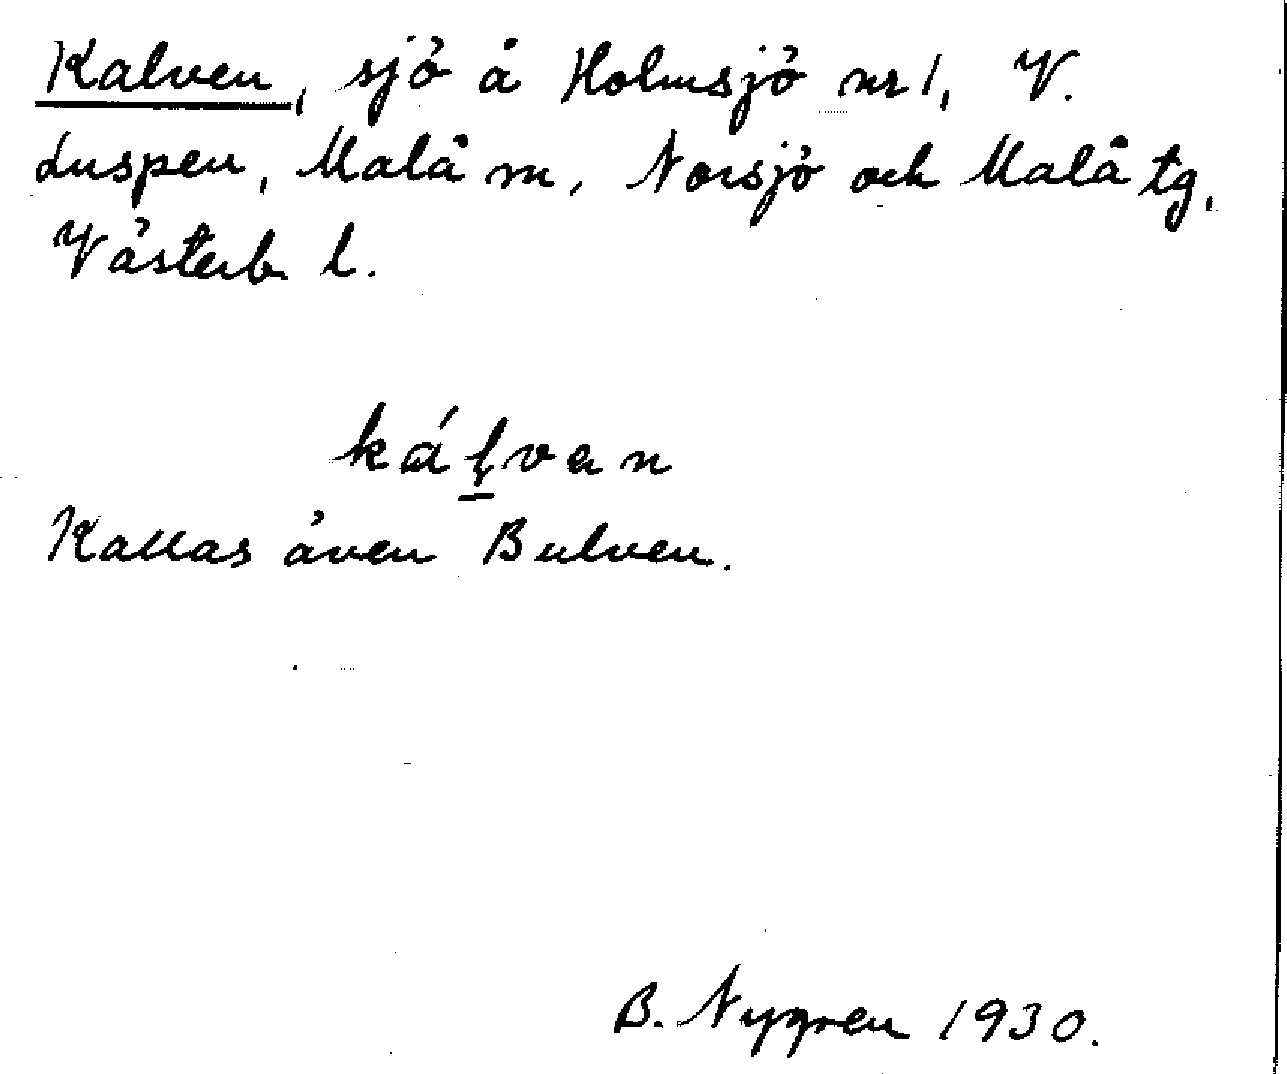 Kalven, sjö å Holmsjö nr 1, V.
Luspen, Malå m, Norsjö och Malå tg,
Västerb. l.
ká̱ļvan
Kallas även Bulven.
B. Nygren 1930.